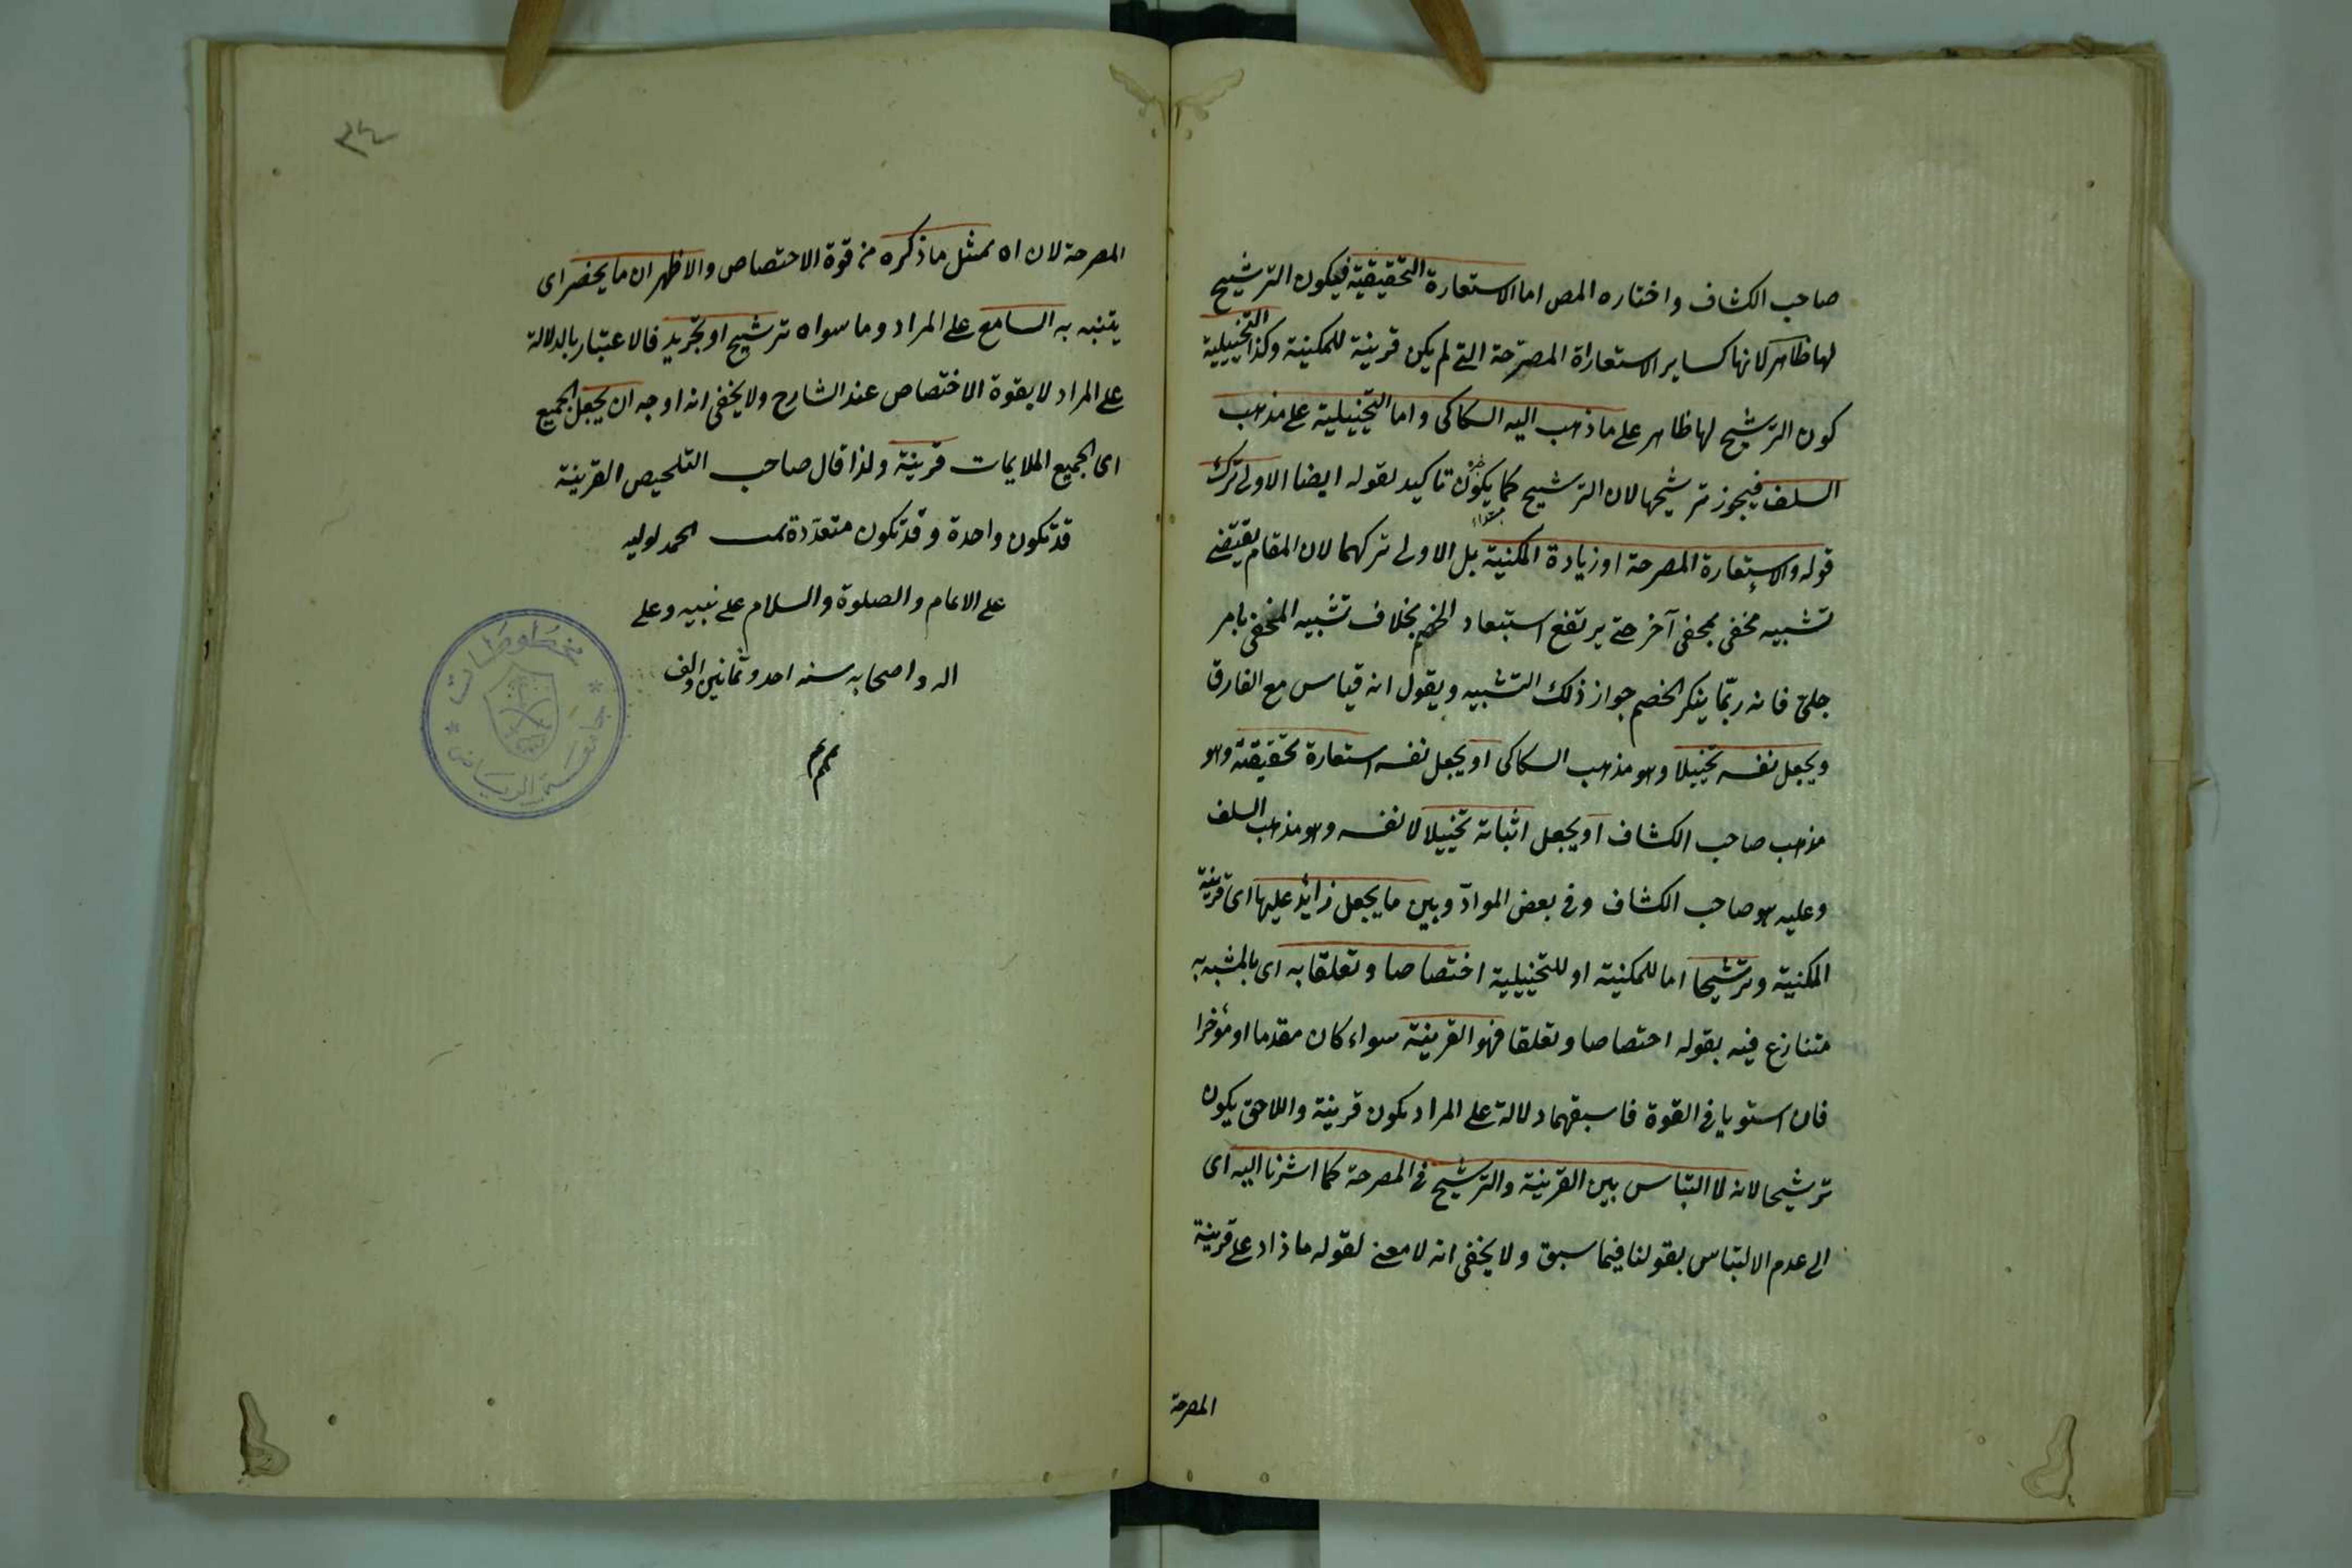 صاحب الكشاف واختاره المص اما الاستعارة التحقيقية فيكون الترشيح
لها ظاهر لانها كساير الاستعاراة المصرحة التى لم يكن قرينة للمكنية وكذا التخييلية
كون الترشيح لها ظاهر على ما ذهب اليه السكاكى واما التخييلية على مذهب
السلف فيجوز ترشيحها لان الترشيح كما يكون تاكيد لقوله ايضا الاولى ترك
قوله والاستعارة المصرحة او زيادة المكنية بل الاولى تركهما لان المقام يقتضى
تشبيه مخفى بمخفى آخر حتى يرتفع استبعاد الخصم بخلاف تشبيه المخفى بامر
جلىّ فانه ربّما ينكر الخصم جواز ذلك التشبيه ويقول انه قياس مع الفارق
ويجعل نفسه تخييلا وهو مذهب السكاكى او يجعل نفسه استعارة تحقيقية وهو
مذهب صاحب الكشاف او يجعل اثباته تخييلا لا نفسه وهو مذهب السلف
وعليه هو صاحب الكشاف وفى بعض الموادّ وبين ما يجعل زائد عليها اى قرينة
المكنية وترشيحا اما للمكنية او للتخييلية اختصاصا وتعلقا به اى بالمشبه به
متنازع فيه بقوله اختصاصا وتعلقا فهو القرينة سواء كان مقدما او مؤخرا
فان استويا فى القوة فاسبقهما دلالة على المراد يكون قرينة واللاحق يكون
ترشيحا لانه لا التباس بين القرينة والترشيح فى المصرحة كما اشرنا اليه اى
الى عدم الالتباس بقولنا فيما سبق ولا يخفى انه لا معنى لقوله ما زاد على قرينة
المصرحة
المصرحة لان اه بمثل ما ذكره من قوة الاختصاص والاظهر ان ما يحضر اى
يتنبه به السامع على المراد وما سواه ترشيح او تجريد فالاعتبار بالدلالة
على المراد لا بقوة الاختصاص عند الشارح ولا يخفى انه اوجه ان يجعل الجميع
اى الجميع الملايمات قرينة ولذا قال صاحب التلخيص القرينة
قد تكون واحدة وقد تكون متعدّدة تمت الحمد لوليه
على الاتمام والصلوة والسلام على نبيه وعلى
اله واصحابه سنه احد وثمانين والف
مخطوطات
جامعة الرياض